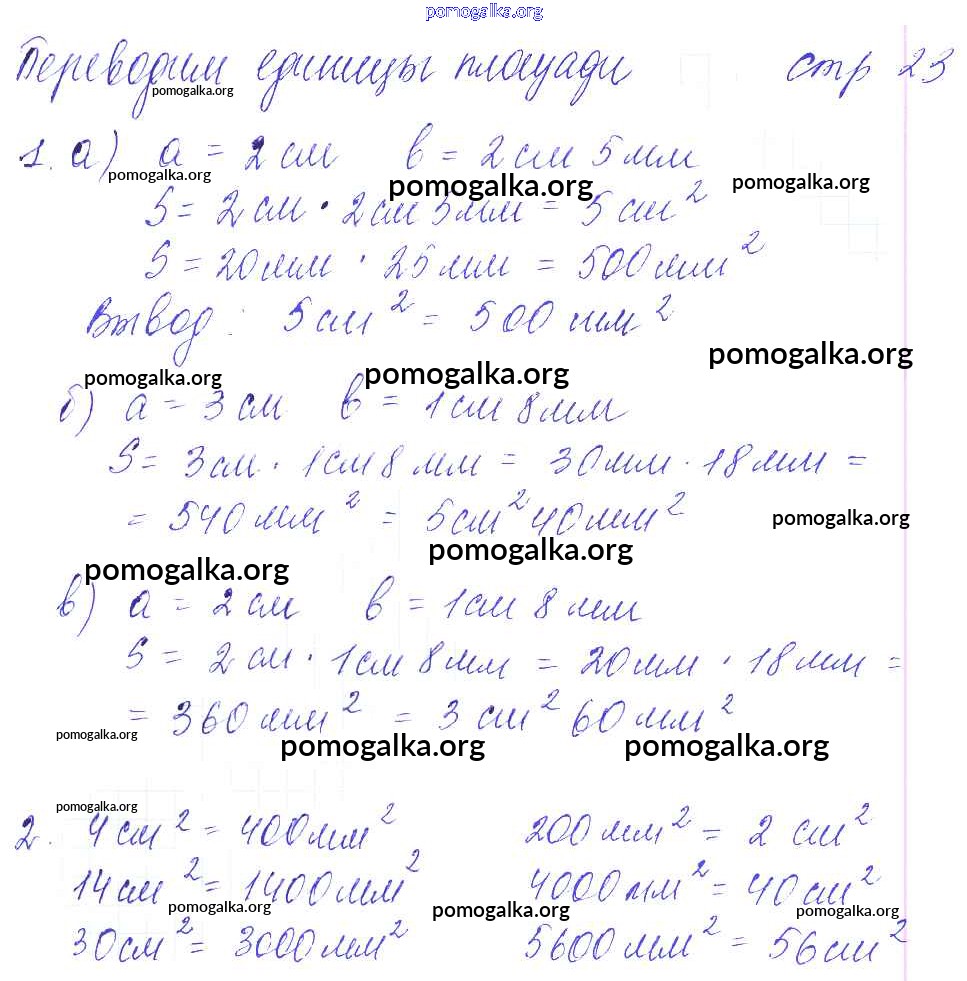 pomogalka.org
Переводим единицы площади стр 23
pomogalka.org
1. а) а = 2 см в = 2 см 5 мм
pomogalka.org pomogalka.org pomogalka.org
S = 2 см · 2 см 5 мм = 5 см²
S = 20 мм · 25 мм = 500 мм²
Вывод: 5 см² = 500 мм²
pomogalka.org
pomogalka.org pomogalka.org
б) а = 3 см в = 1 см 8 мм
S = 3 см · 1 см 8 мм = 30 мм · 18 мм =
= 540 мм² = 5 см² 40 мм²
pomogalka.org
pomogalka.org
pomogalka.org
в) а = 2 см в = 1 см 8 мм
S = 2 см · 1 см 8 мм = 20 мм · 18 мм =
= 360 мм² = 3 см² 60 мм²
pomogalka.org
pomogalka.org pomogalka.org
pomogalka.org
2. 4 см² = 400 мм² 200 мм² = 2 см²
14 см² = 1400 мм² 4000 мм² = 40 см²
pomogalka.org pomogalka.org pomogalka.org
30 см² = 3000 мм² 5600 мм² = 56 см²